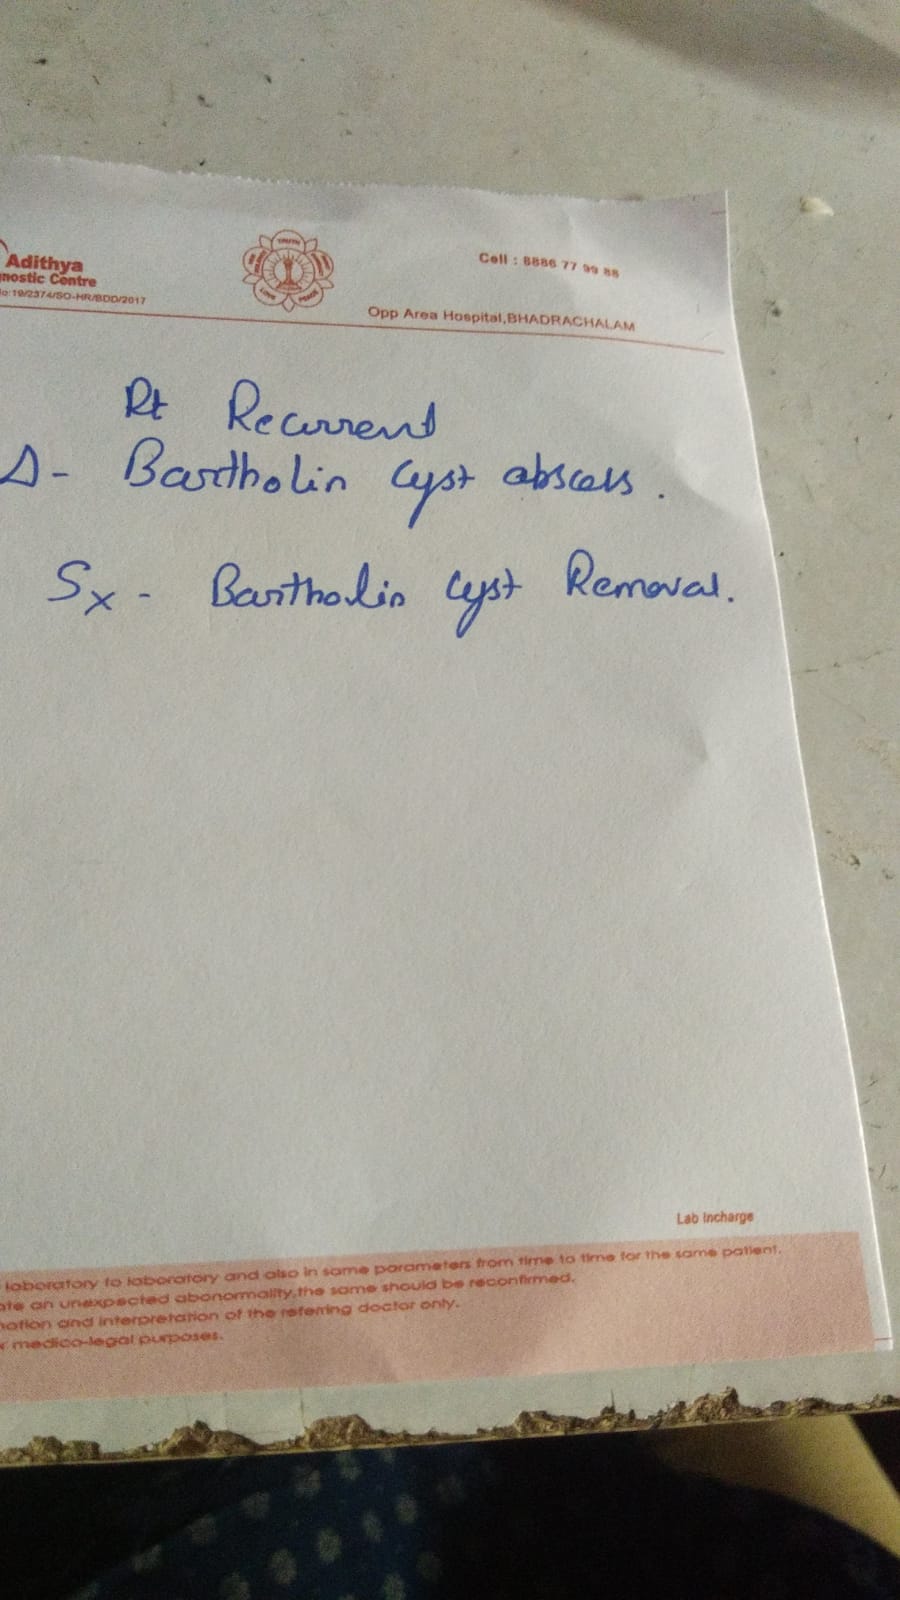 Adithya
nostic Centre
No:19/2374/SO-HR/BDD/2017
TRUTH
LOVE
PEACE
Cell : 8886 77 99 88
Opp Area Hospital,BHADRACHALAM
Rt Recurrent
Δ- Bartholin Cyst abscess.
Sx - Bartholin Cyst Removal.
Lab Incharge
laboratory to laboratory and also in same parameters from time to time for the same patient.
ate an unexpected abonormality,the same should be reconfirmed.
nation and interpretation of the referring doctor only.
r medico-legal purposes.